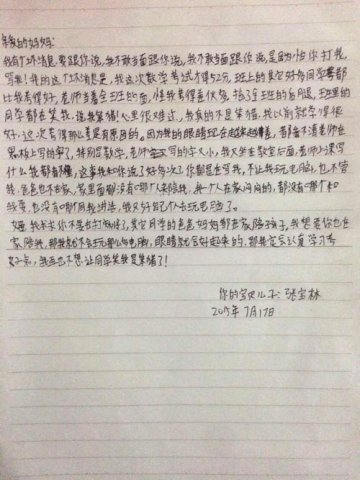 亲爱的妈妈:
我有个坏消息要跟你说,我不敢当面跟你说,我不敢当面跟你说是因为怕你打我,
骂我!我的这个坏消息是,我这次数学考试才得52分,班上的其它好多同学都
比我考得好,老师当着全班的面,怪我考得差伙,拖了全班的后腿,班里的
同学都在笑我,说我笨猪!心里很难过,我真的不是笨猪,我以前就学得很
好,这次考得那么差是有原因的,因为我的眼睛现在越来越,都看不清老师在
黑板上写的字了,特别是数学,老师写的字又小,我又坐在教室后面,老师上课写
什么我都看不,这事我和你说了好多次了你都是在骂我,不让我玩电脑,也不管
我,爸爸也不在家,家里面都没有哪个来陪我,每一个在家闷闷的,都没有哪个和
我耍,也没有哪个月我讲话,我又好
妈,我求求你不要去打麻将了,其它同学的爸爸妈妈都在家陪孩子,我想要你也在
家陪我,那我就不会玩那么多电脑,眼睛就会好起来的,那我定会认真学习考
好点,我再也不想让同学笑我是笨猪了!
你的宝贝儿子:张宝林
2015年7月17日